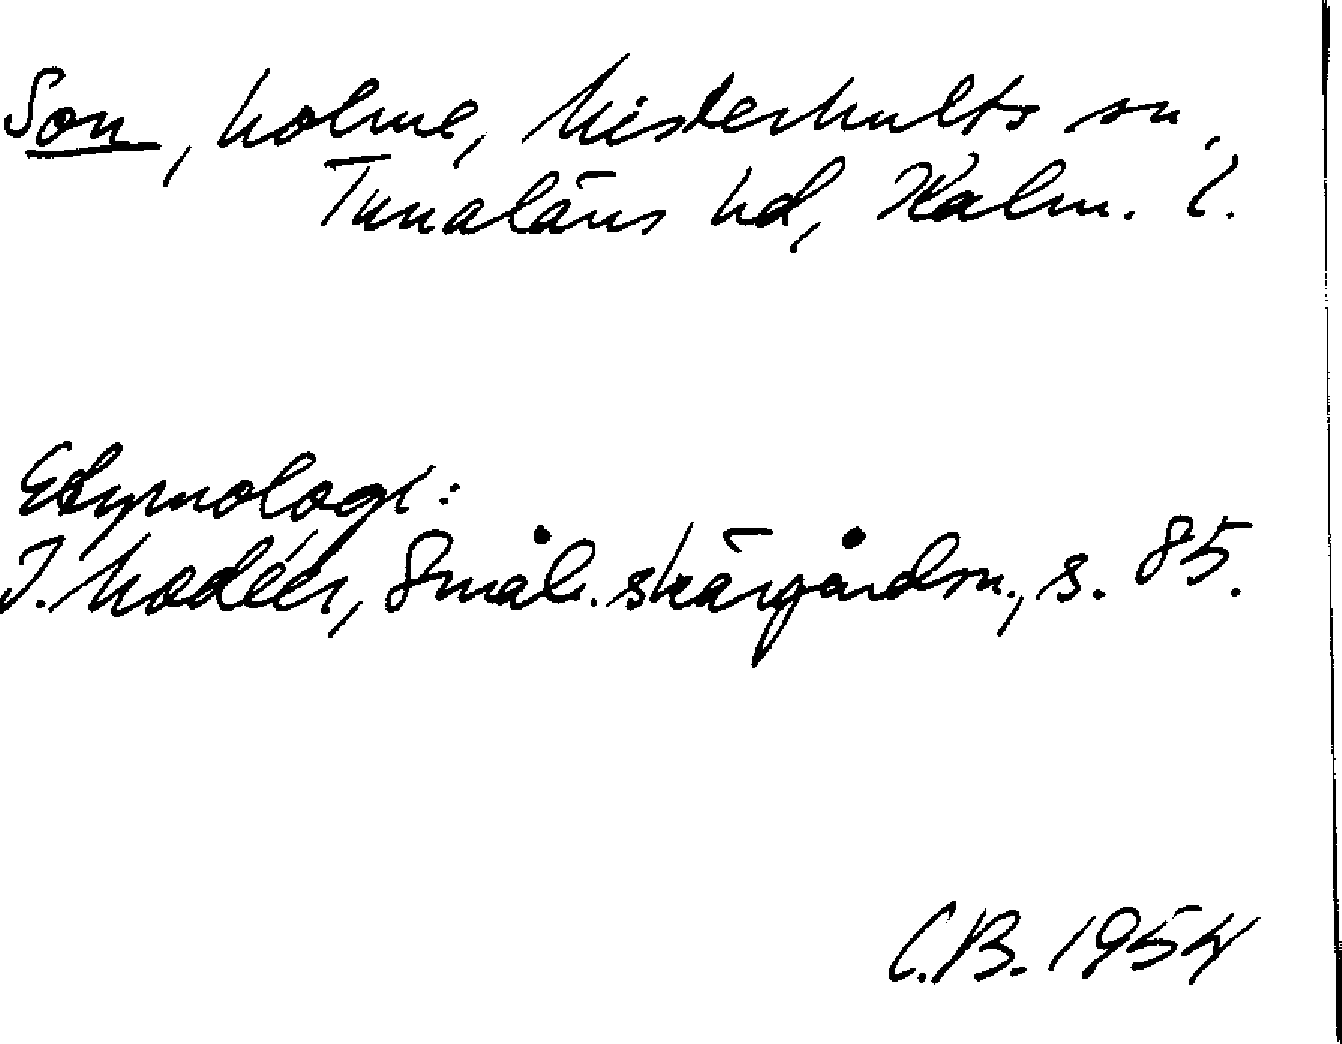 Son, holme, Misterhults sn,
Tunaläns hd, Kalm. l.
Etymologi:
I. Modéer, Smål. skärgårdsn., s. 85.
C.B. 1954